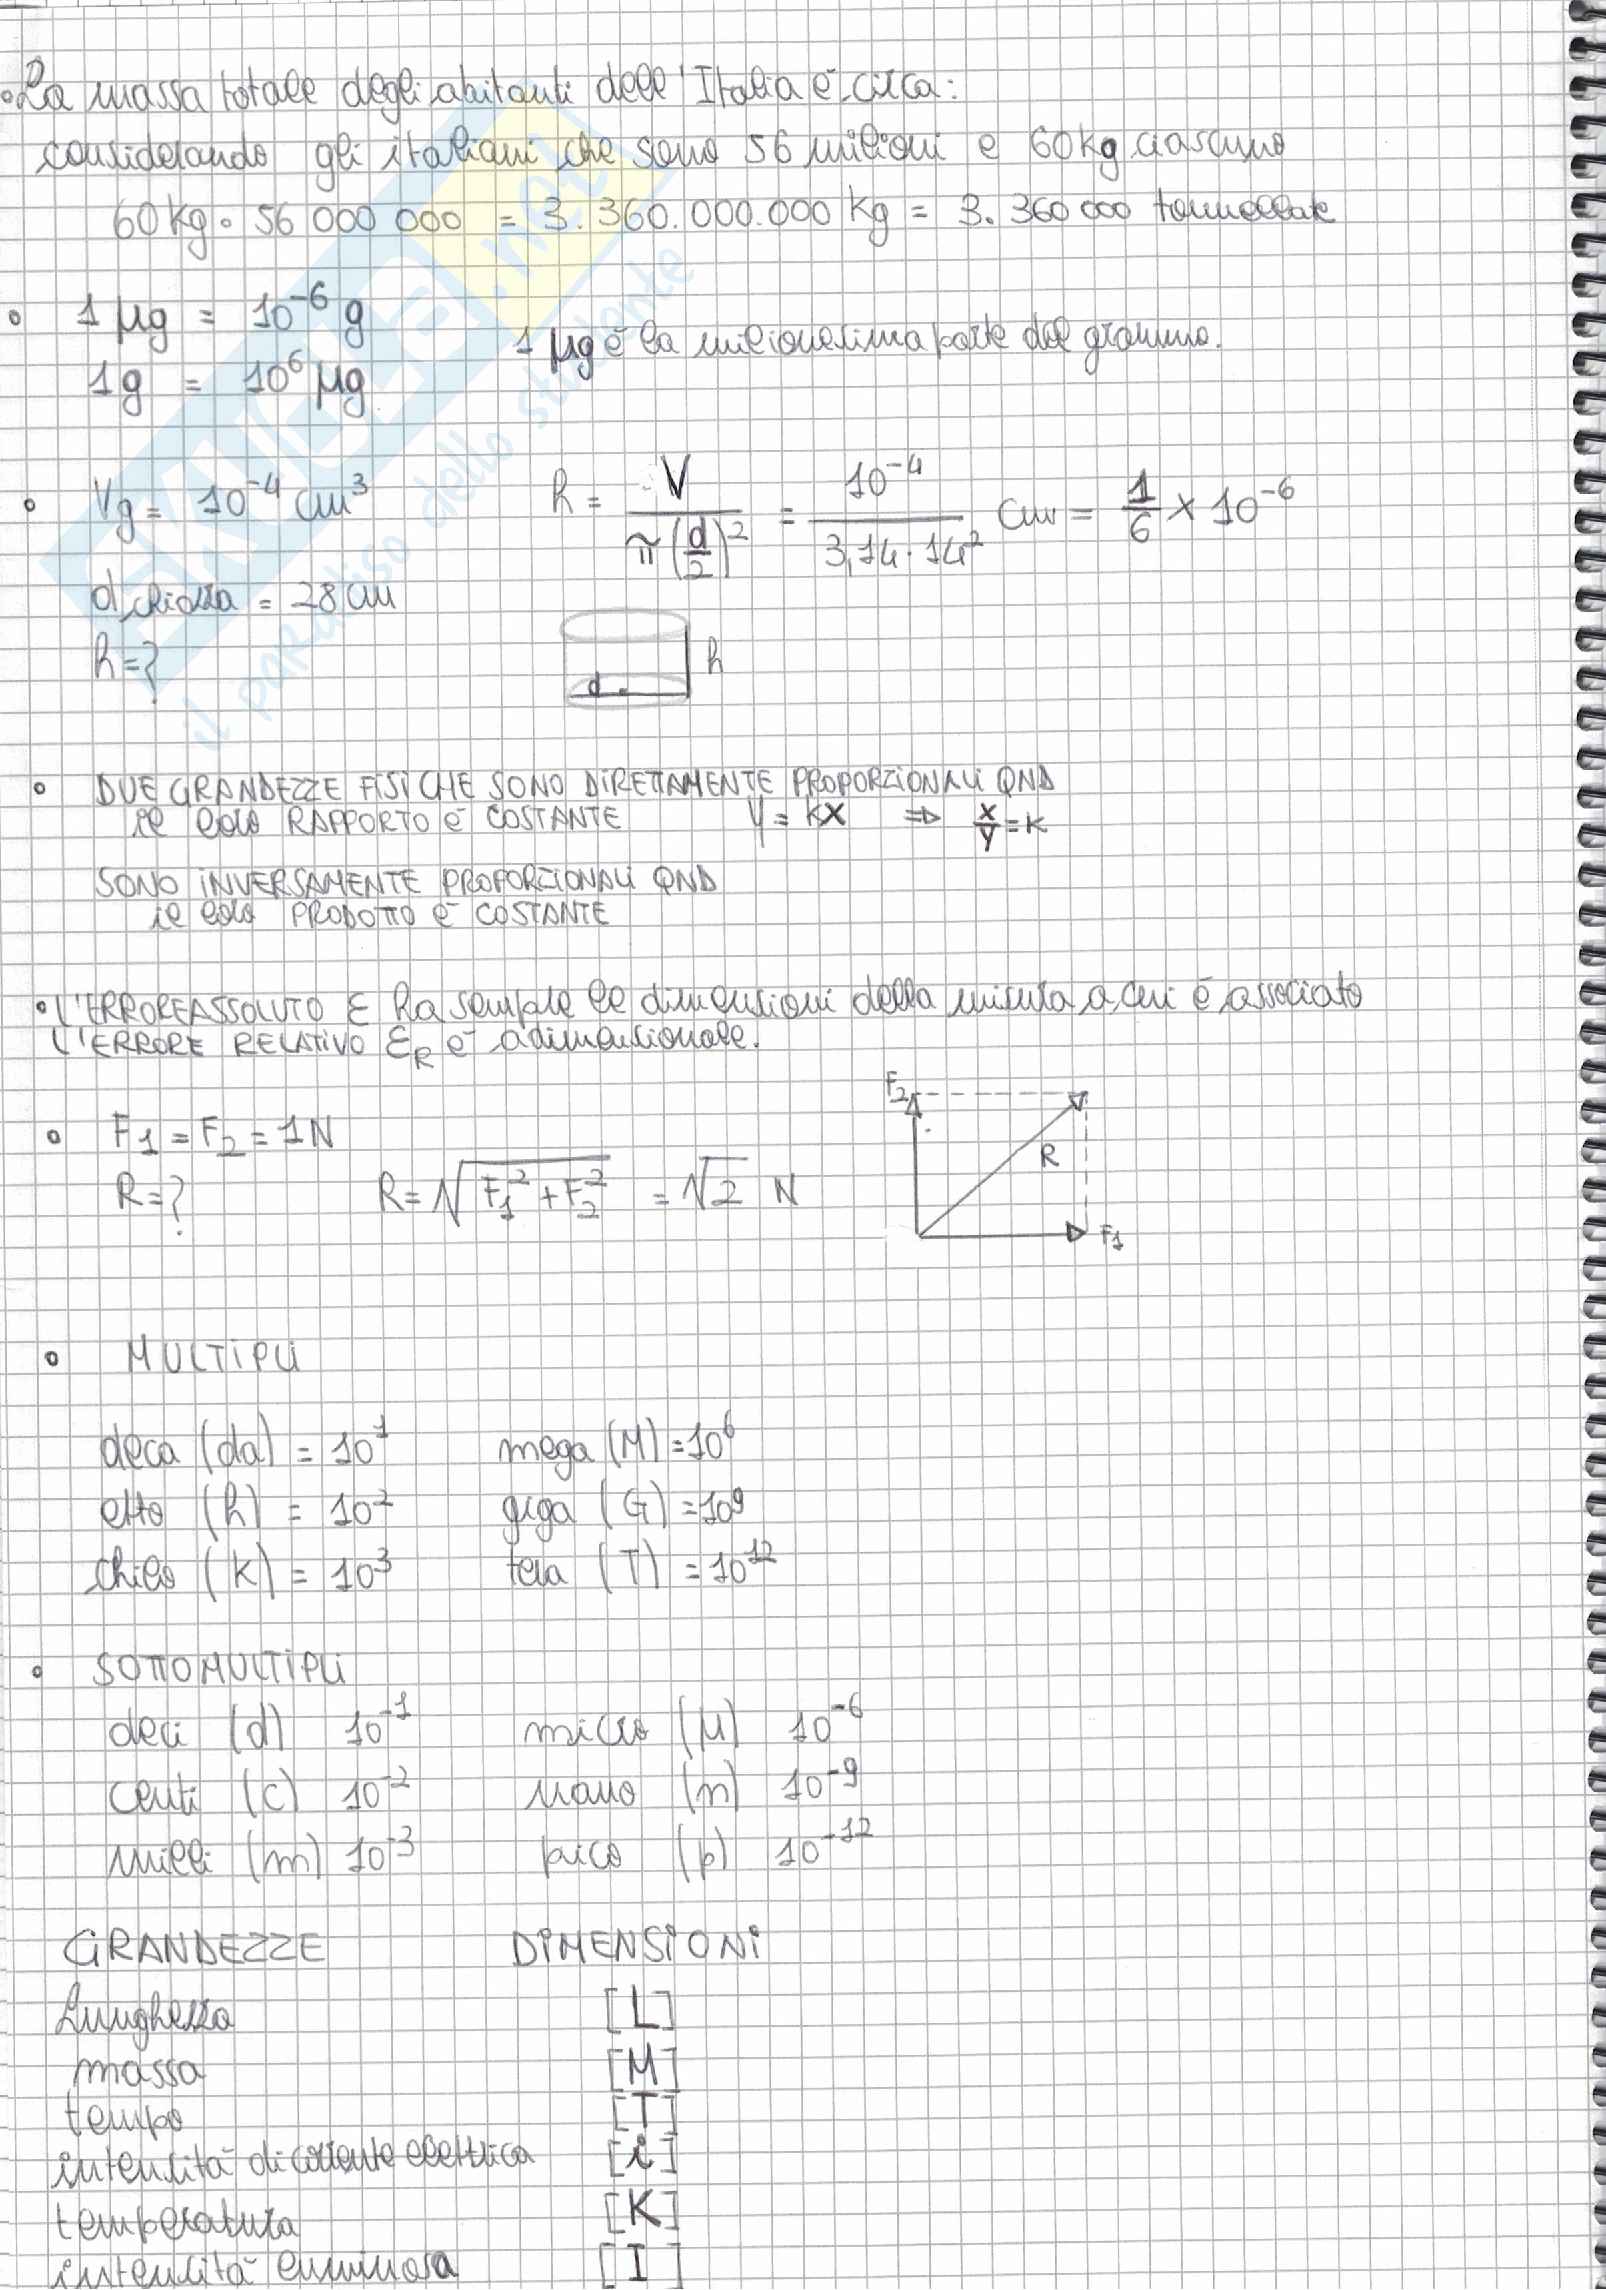 • La massa totale degli abitanti dell'Italia è circa:
considerando gli italiani che sono 56 milioni e 60kg ciascuno
60Kg • 56 000 000 = 3.360.000.000 Kg = 3.360 000 tonnellate
• 1 μg = 10⁻⁶ g
1 μg è la milionesima parte del grammo.
1g = 10⁶ μg
• Vg = 10⁻⁴ cm³
h = V / π (d/2)² = 10⁻⁴ / 3,14 · 14² cm = 1/6 × 10⁻⁶
d chiazza = 28 cm
h = ?
d
h
• DUE GRANDEZZE FISICHE SONO DIRETTAMENTE PROPORZIONALI QND
il loro RAPPORTO È COSTANTE y = kx ⇒ x/y = k
SONO INVERSAMENTE PROPORZIONALI QND
il loro PRODOTTO È COSTANTE
• L'ERRORE ASSOLUTO ε ha sempre le dimensioni della misura a cui è associato
L'ERRORE RELATIVO εR è adimensionale.
• F₁ = F₂ = 1 N
R = ? R = √F₁² + F₂² = √2 N
F₂
R
F₁
• MULTIPLI
deca (da) = 10¹ mega (M) = 10⁶
etto (h) = 10² giga (G) = 10⁹
chilo (k) = 10³ tera (T) = 10¹²
• SOTTOMULTIPLI
deci (d) 10⁻¹ micro (μ) 10⁻⁶
centi (c) 10⁻² nano (n) 10⁻⁹
milli (m) 10⁻³ pico (p) 10⁻¹²
GRANDEZZE DIMENSIONI
Lunghezza [L]
massa [M]
tempo [T]
intensità di corrente elettrica [i]
temperatura [K]
intensità luminosa [I]
SKUOLA.net
il paradiso dello studente